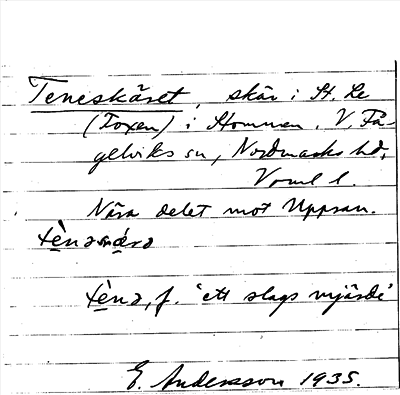 Teneskäret, skär i St. Le
(Foxen) i Hommen, V. Få-
gelviks sn, Nordmarks hd,
Vrml l.
Nära delet mot Uppsan.
tè̱nəsꞥǽrə
tè̱nə, f. 'ett slags mjärde'
E. Andersson 1935.